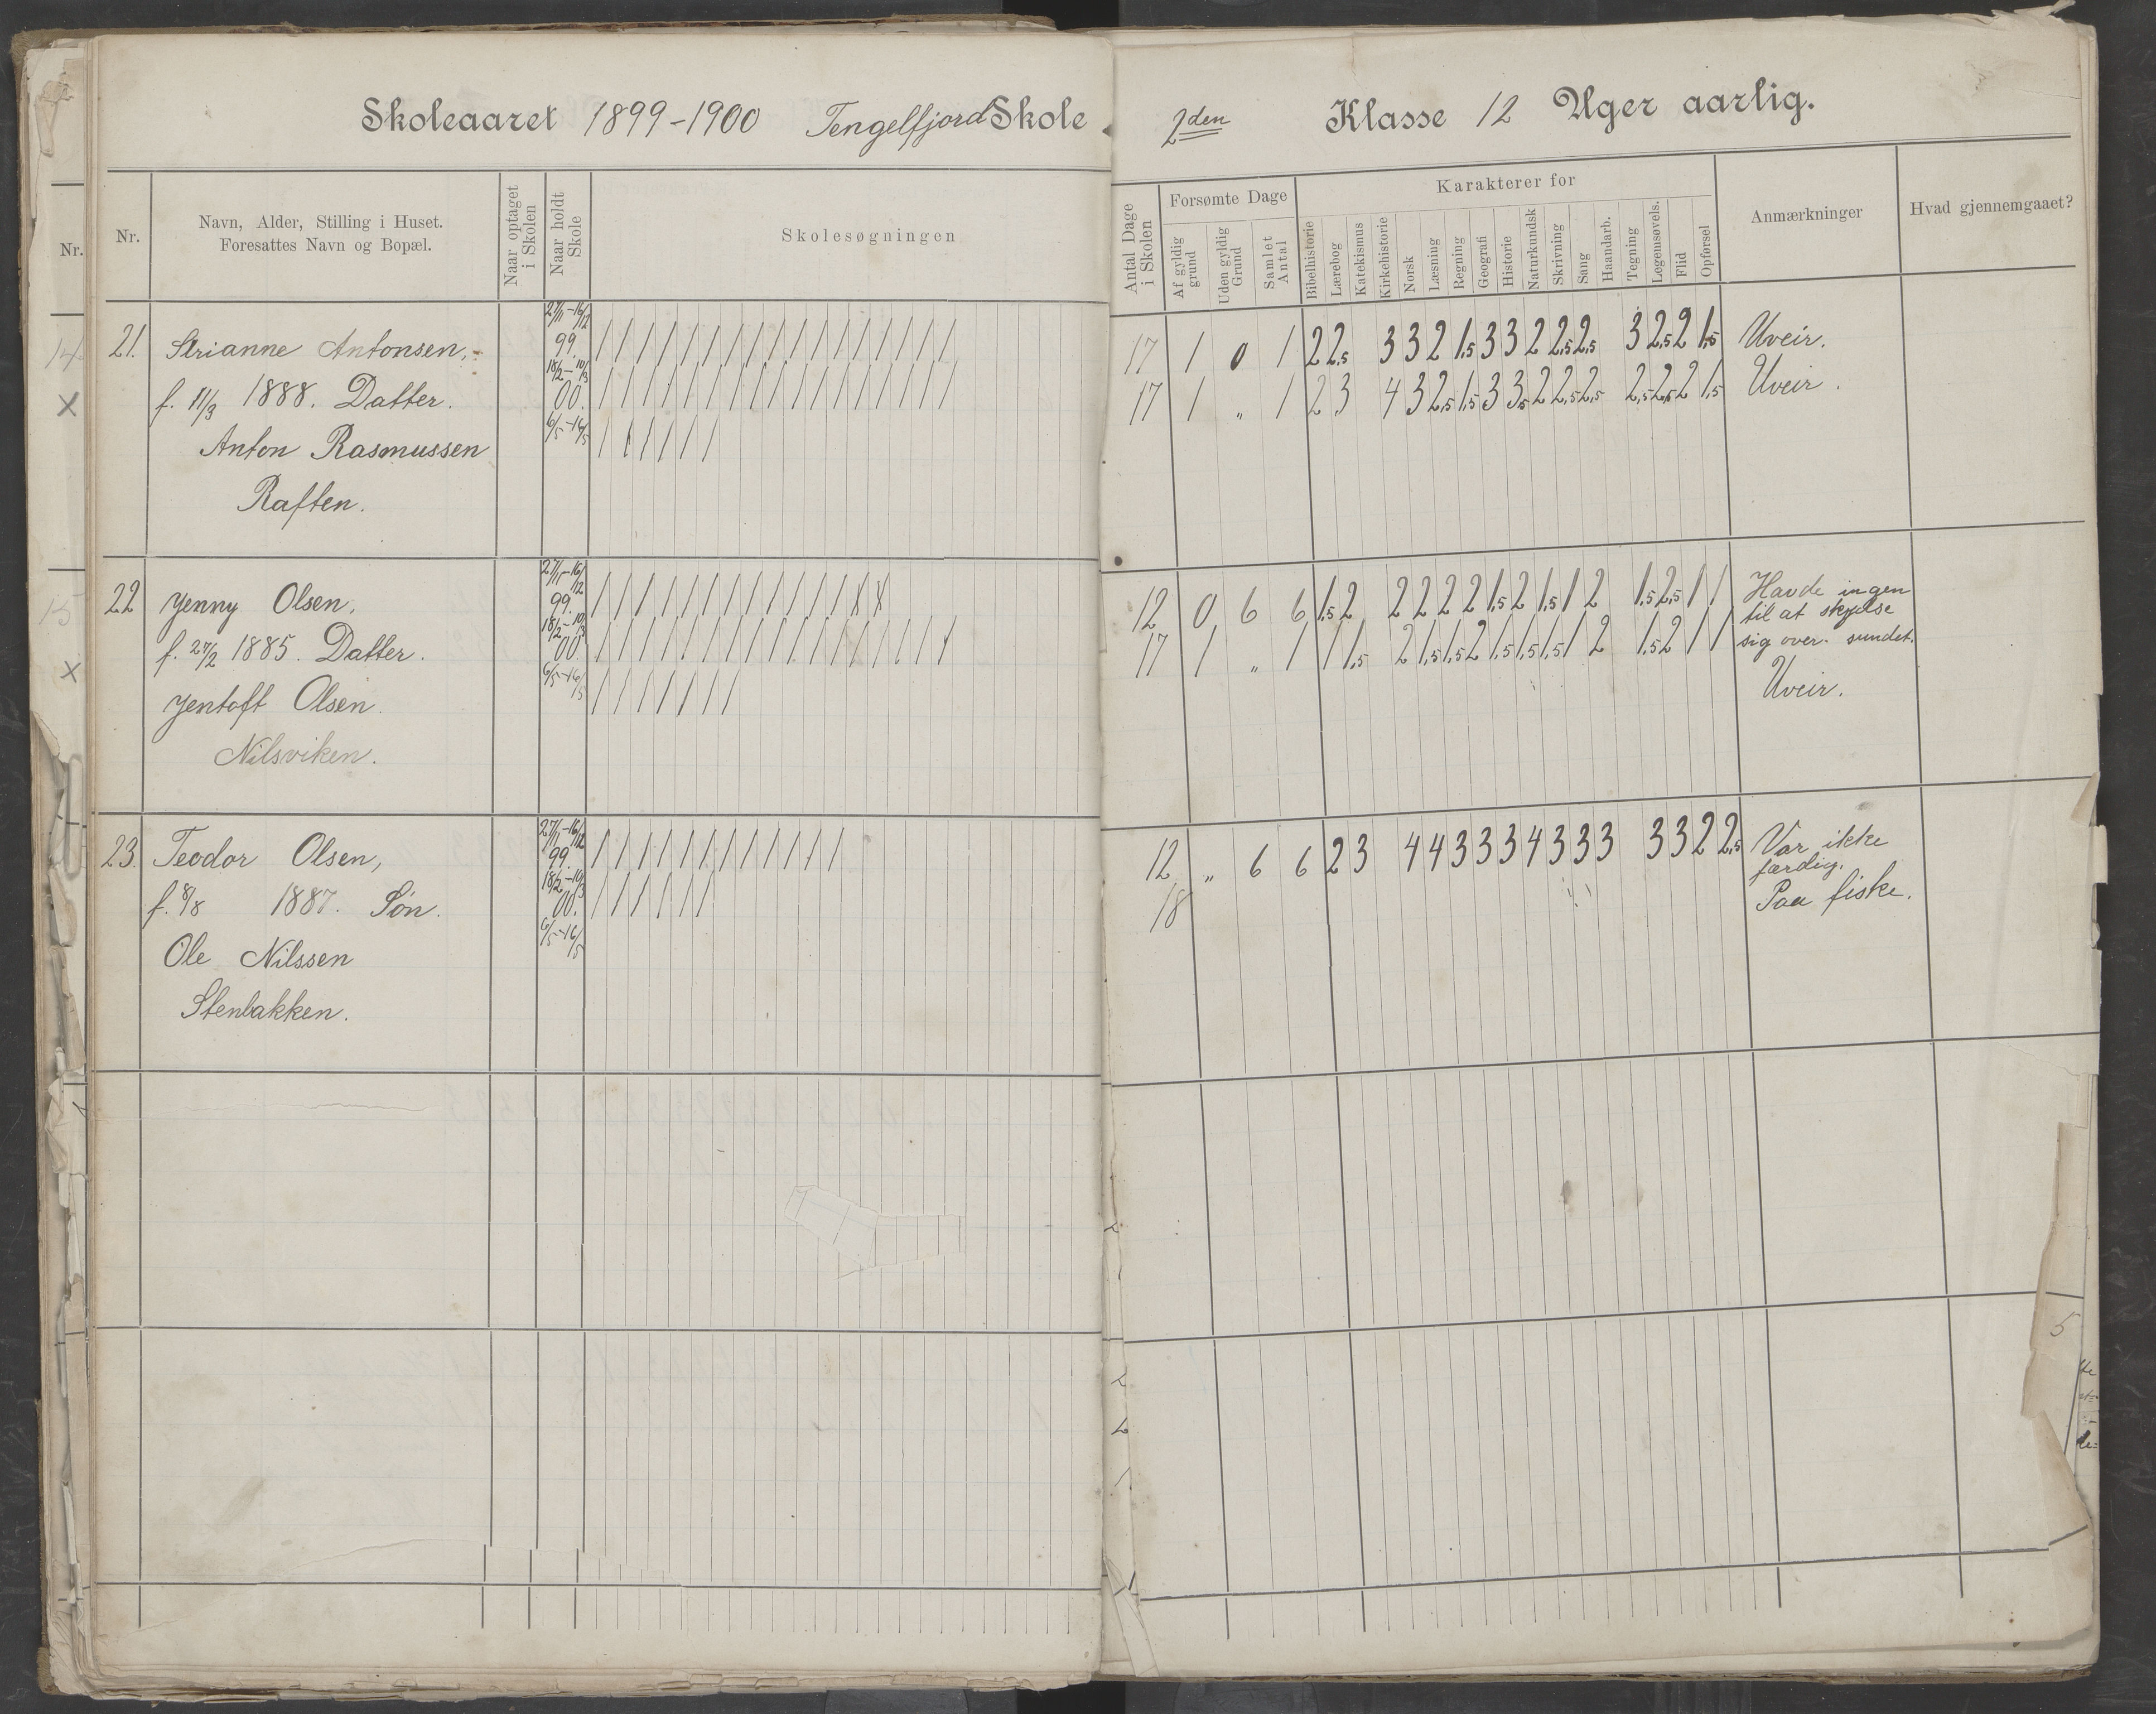 Skoleaaret 1899-1900 Tengelfjord Skole
2den Klasse 12 Uger aarlig.
Nr.
Nr.
Navn, Alder, Stilling i Huset.
Foresattes Navn og Bopæl.
Naar optaget
i Skolen
Naar holdt
Skole
Skolesøgningen
Antal Dage
i Skolen
Forsømte Dage
Af gyldig
grund
Uden gyldig
Grund
Samlet
Antal
Karakterer for
Bibelhistorie
Lærebog
Katekismus
Kirkehistorie
Norsk
Læsning
Regning
Geografi
Historie
Naturkundsk
Skrivning
Sang
Haandarb.
Tegning
Legemsøvels.
Flid
Opførsel
Anmærkninger
Hvad gjennemgaaet?
14
21. Antonsen, 27/11-16/12 99. 17 1 0 1 2 2,5 3 3 2 1,5 3 3 2 2,5 2,5 3 2,5 2 1,5 Uveir.
f. 11/3 1888. Datter. 18/2-10/3 00. 17 1 " 1 2 3 4 3 2,5 1,5 3 3,5 2 2,5 2,5 2,5 2,5 2 1,5 Uveir.
Anton Rasmussen 6/5-16/5
Raften.
15
22 Jenny Olsen, 27/11-16/12 99. 12 0 6 6 1,5 2 2 2 2 2 1,5 2 1,5 1 2 1,5 2,5 1 1 Havde ingen
til at skydse
f. 27/2 1885. Datter. 18/2-10/3 00. 17 1 " 1 1 1,5 2 1,5 1,5 2 1,5 1,5 1,5 1 2 1,5 2 1 1 sig over sundet.
Jentoft Olsen. 6/5-16/5 Uveir.
Nilsviken.
23. Teodor Olsen, 27/11-16/12 99. 12 " 6 6 2 3 4 4 3 3 3 4 3 3 3 3 3 2 2,5 Var ikke
færdig.
f. 8/8 1887. Søn. 18/2-10/3 00. 18 Paa fiske.
Ole Nilssen 6/5-16/5
Stenbakken.
5